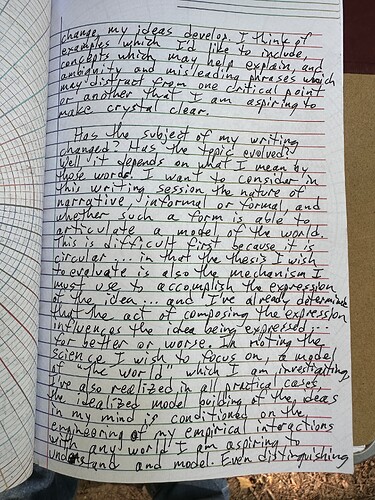 change, my ideas develop. I think of
examples which I'd like to include,
concepts which may help explain, and
ambiguity and misleading phrases which
may distract from one critical point
or another that I am aspiring to
make crystal clear.
Has the subject of my writing
changed? Has the topic evolved?
Well it depends on what I mean by
those words. I want to consider in
this writing session the nature of
narrative, informal or formal, and
whether such a form is able to
articulate a model of the world.
This is difficult first because it is
circular... in that the thesis I wish
to evaluate is also the mechanism I
must use to accomplish the expression
of the idea... and I've already determined
that the act of composing the expression
influences the idea being expressed...
for better or worse. In noting the
science I wish to focus on, a model
of "the world" which I am investigating,
I've also realized in all practical cases,
the idealized model building of the ideas
in my mind is conditioned on the
engineering of my empirical interactions
with any world I am aspiring to
understand and model. Even distinguishing